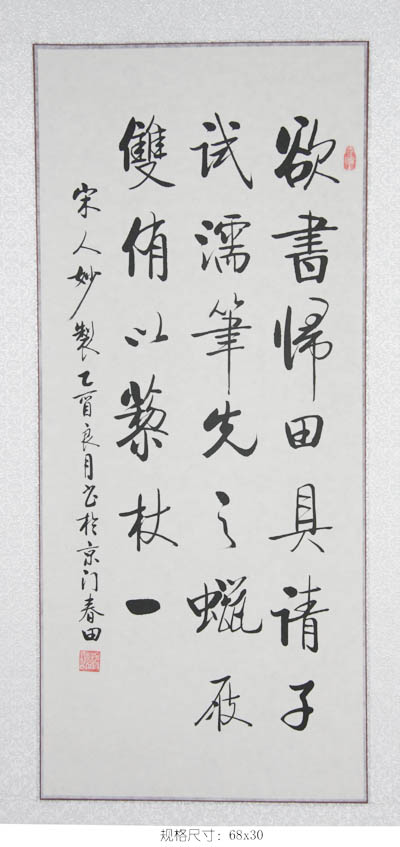 欲書歸田具请子
试濡筆先之蠟屐
雙侑以藜杖一
宋人妙製乙酉良月书於京门春田
规格尺寸：68x30